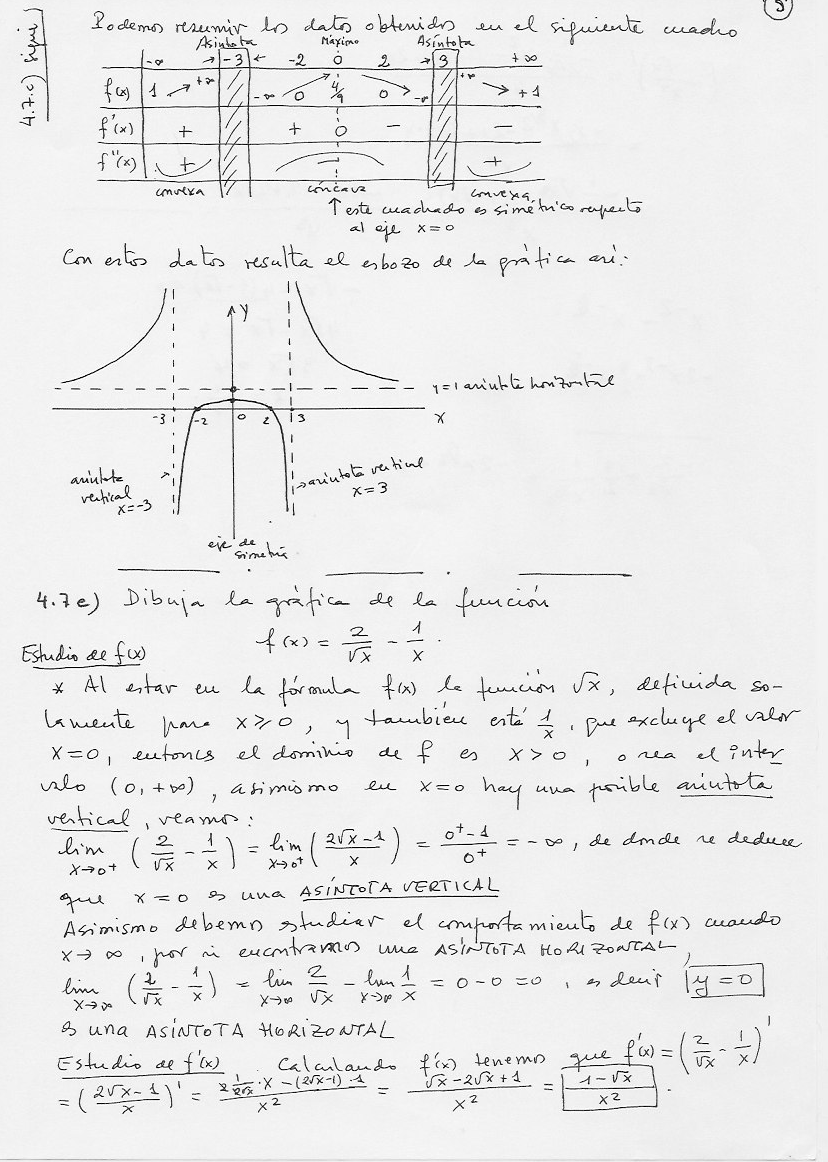 4.7.c) sigue)
Podemos resumir los datos obtenidos en el siguiente cuadro
Asíntota Máximo Asíntota
-∞ → -3 ← -2 0 2 → 3 +∞
f(x) 1 ↗ +∞ -∞ 0 4/9 0 -∞ +∞ ↘ +1
f'(x) + + 0 - -
f''(x) + - +
convexa cóncava convexa
↑ este cuadrado es simétrico respecto
al eje x=0
Con estos datos resulta el esbozo de la gráfica así:
y
y=1 asíntota horizontal
-3 -2 0 2 3 x
asíntota
vertical
x=-3
asíntota vertical
x=3
eje de
simetría
4.7e) Dibuja la gráfica de la función
f(x) = 2/√x - 1/x.
Estudio de f(x)
* Al estar en la fórmula f(x) la función √x, definida so-
lamente para x≥0, y también está 1/x, que excluye el valor
x=0, entonces el dominio de f es x>0, o sea el inter
valo (0,+∞), asimismo en x=0 hay una posible asíntota
vertical, veamos:
lim x→0+ (2/√x - 1/x) = lim x→0+ ((2√x-1)/x) = (0+-1)/0+ = -∞, de donde se deduce
que x=0 es una ASÍNTOTA VERTICAL
Asimismo debemos estudiar el comportamiento de f(x) cuando
x→∞, por si encontramos una ASÍNTOTA HORIZONTAL,
lim x→∞ (2/√x - 1/x) = lim x→∞ 2/√x - lim x→∞ 1/x = 0-0=0, es decir y=0
es una ASÍNTOTA HORIZONTAL
Estudio de f'(x). Calculando f'(x) tenemos que f'(x) = (2/√x - 1/x)'
= ((2√x-1)/x)' = (2 1/(2√x)·x - (2√x-1)·1)/x² = (√x-2√x+1)/x² = (1-√x)/x².